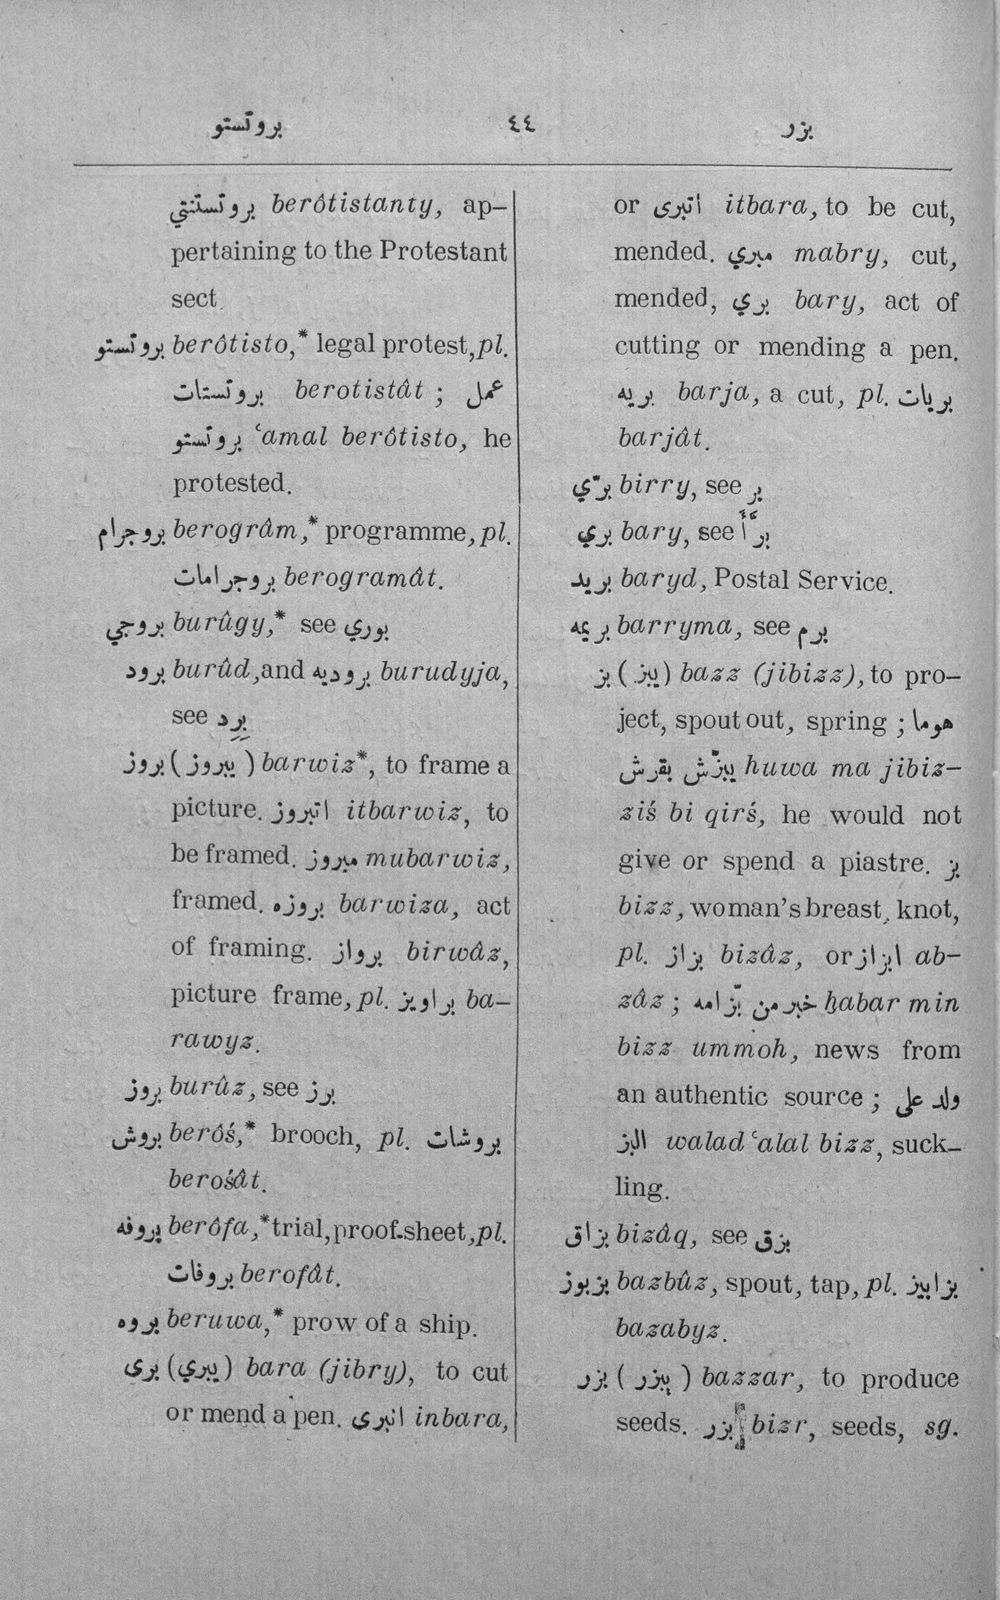 بروتستو ٤٤ بزر
بروتستنتي berôtistanty, ap-
pertaining to the Protestant
sect.
بروتستو berôtisto,* legal protest, pl.
بروتستات berotistât ; عمل
بروتستو ‘amal berôtisto, he
protested.
بروجرام berogrâm,* programme, pl.
بروجرامات berogramât.
بروجي burûgy,* see بوري
برود burûd, and بروديه burudyja,
see برد
بروز (يبروز) barwiz*, to frame a
picture. اتبروز itbarwiz, to
be framed. مبروز mubarwiz,
framed. بروزه barwiza, act
of framing. برواز birwâz,
picture frame, pl. براويز ba-
rawyz.
بروز burûz, see برز
بروش berôś,* brooch, pl. بروشات
berośât.
بروفه berôfa,* trial, proof-sheet, pl.
بروفات berofât.
بروه beruwa,* prow of a ship.
برى (يبري) bara (jibry), to cut
or mend a pen. انبرى inbara,
or اتبرى itbara, to be cut,
mended. مبري mabry, cut,
mended, بري bary, act of
cutting or mending a pen.
بريه barja, a cut, pl. بريات
barjât.
برّي birry, see بر
بري bary, see برأ
بريد baryd, Postal Service.
بريمه barryma, see برم
بز (يبز) bazz (jibizz), to pro-
ject, spout out, spring ; هوما
يبزّش بقرش huwa ma jibiz-
ziś bi qirś, he would not
give or spend a piastre. بز
bizz, woman's breast, knot,
pl. بزاز bizâz, or ابزاز ab-
zâz ; خبر من بزّ امه ḫabar min
bizz ummoh, news from
an authentic source ; ولد على
البز walad ‘alal bizz, suck-
ling.
بزاق bizâq, see بزق
بزبوز bazbûz, spout, tap, pl. بزابيز
bazabyz.
بزر (يبزر) bazzar, to produce
seeds. بزر bizr, seeds, sg.